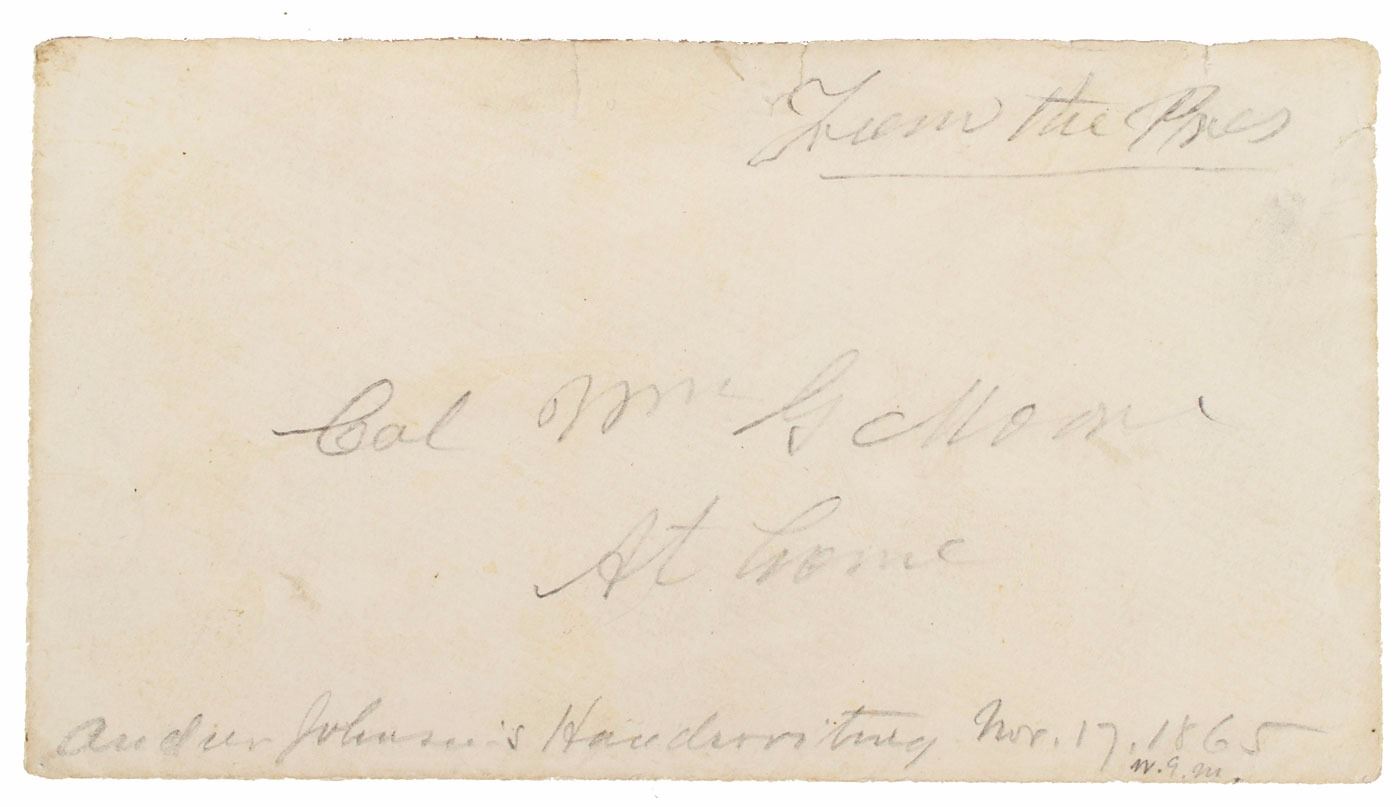 From the Pres
Col Wm G Moore
At home
Andrew Johnson's Handwriting Nov. 17, 1865
W.G.M.